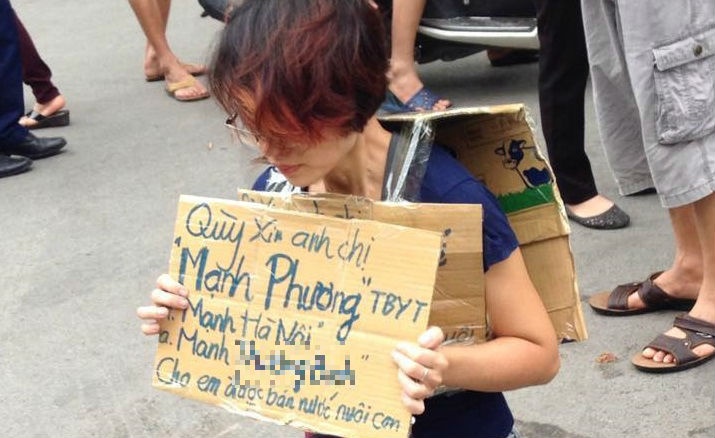 Quỳ xin anh chị
"Mạnh Phương" TBYT
a. Mạnh Hà Nội"
a. Mạnh
Cho em được bán nước nuôi con